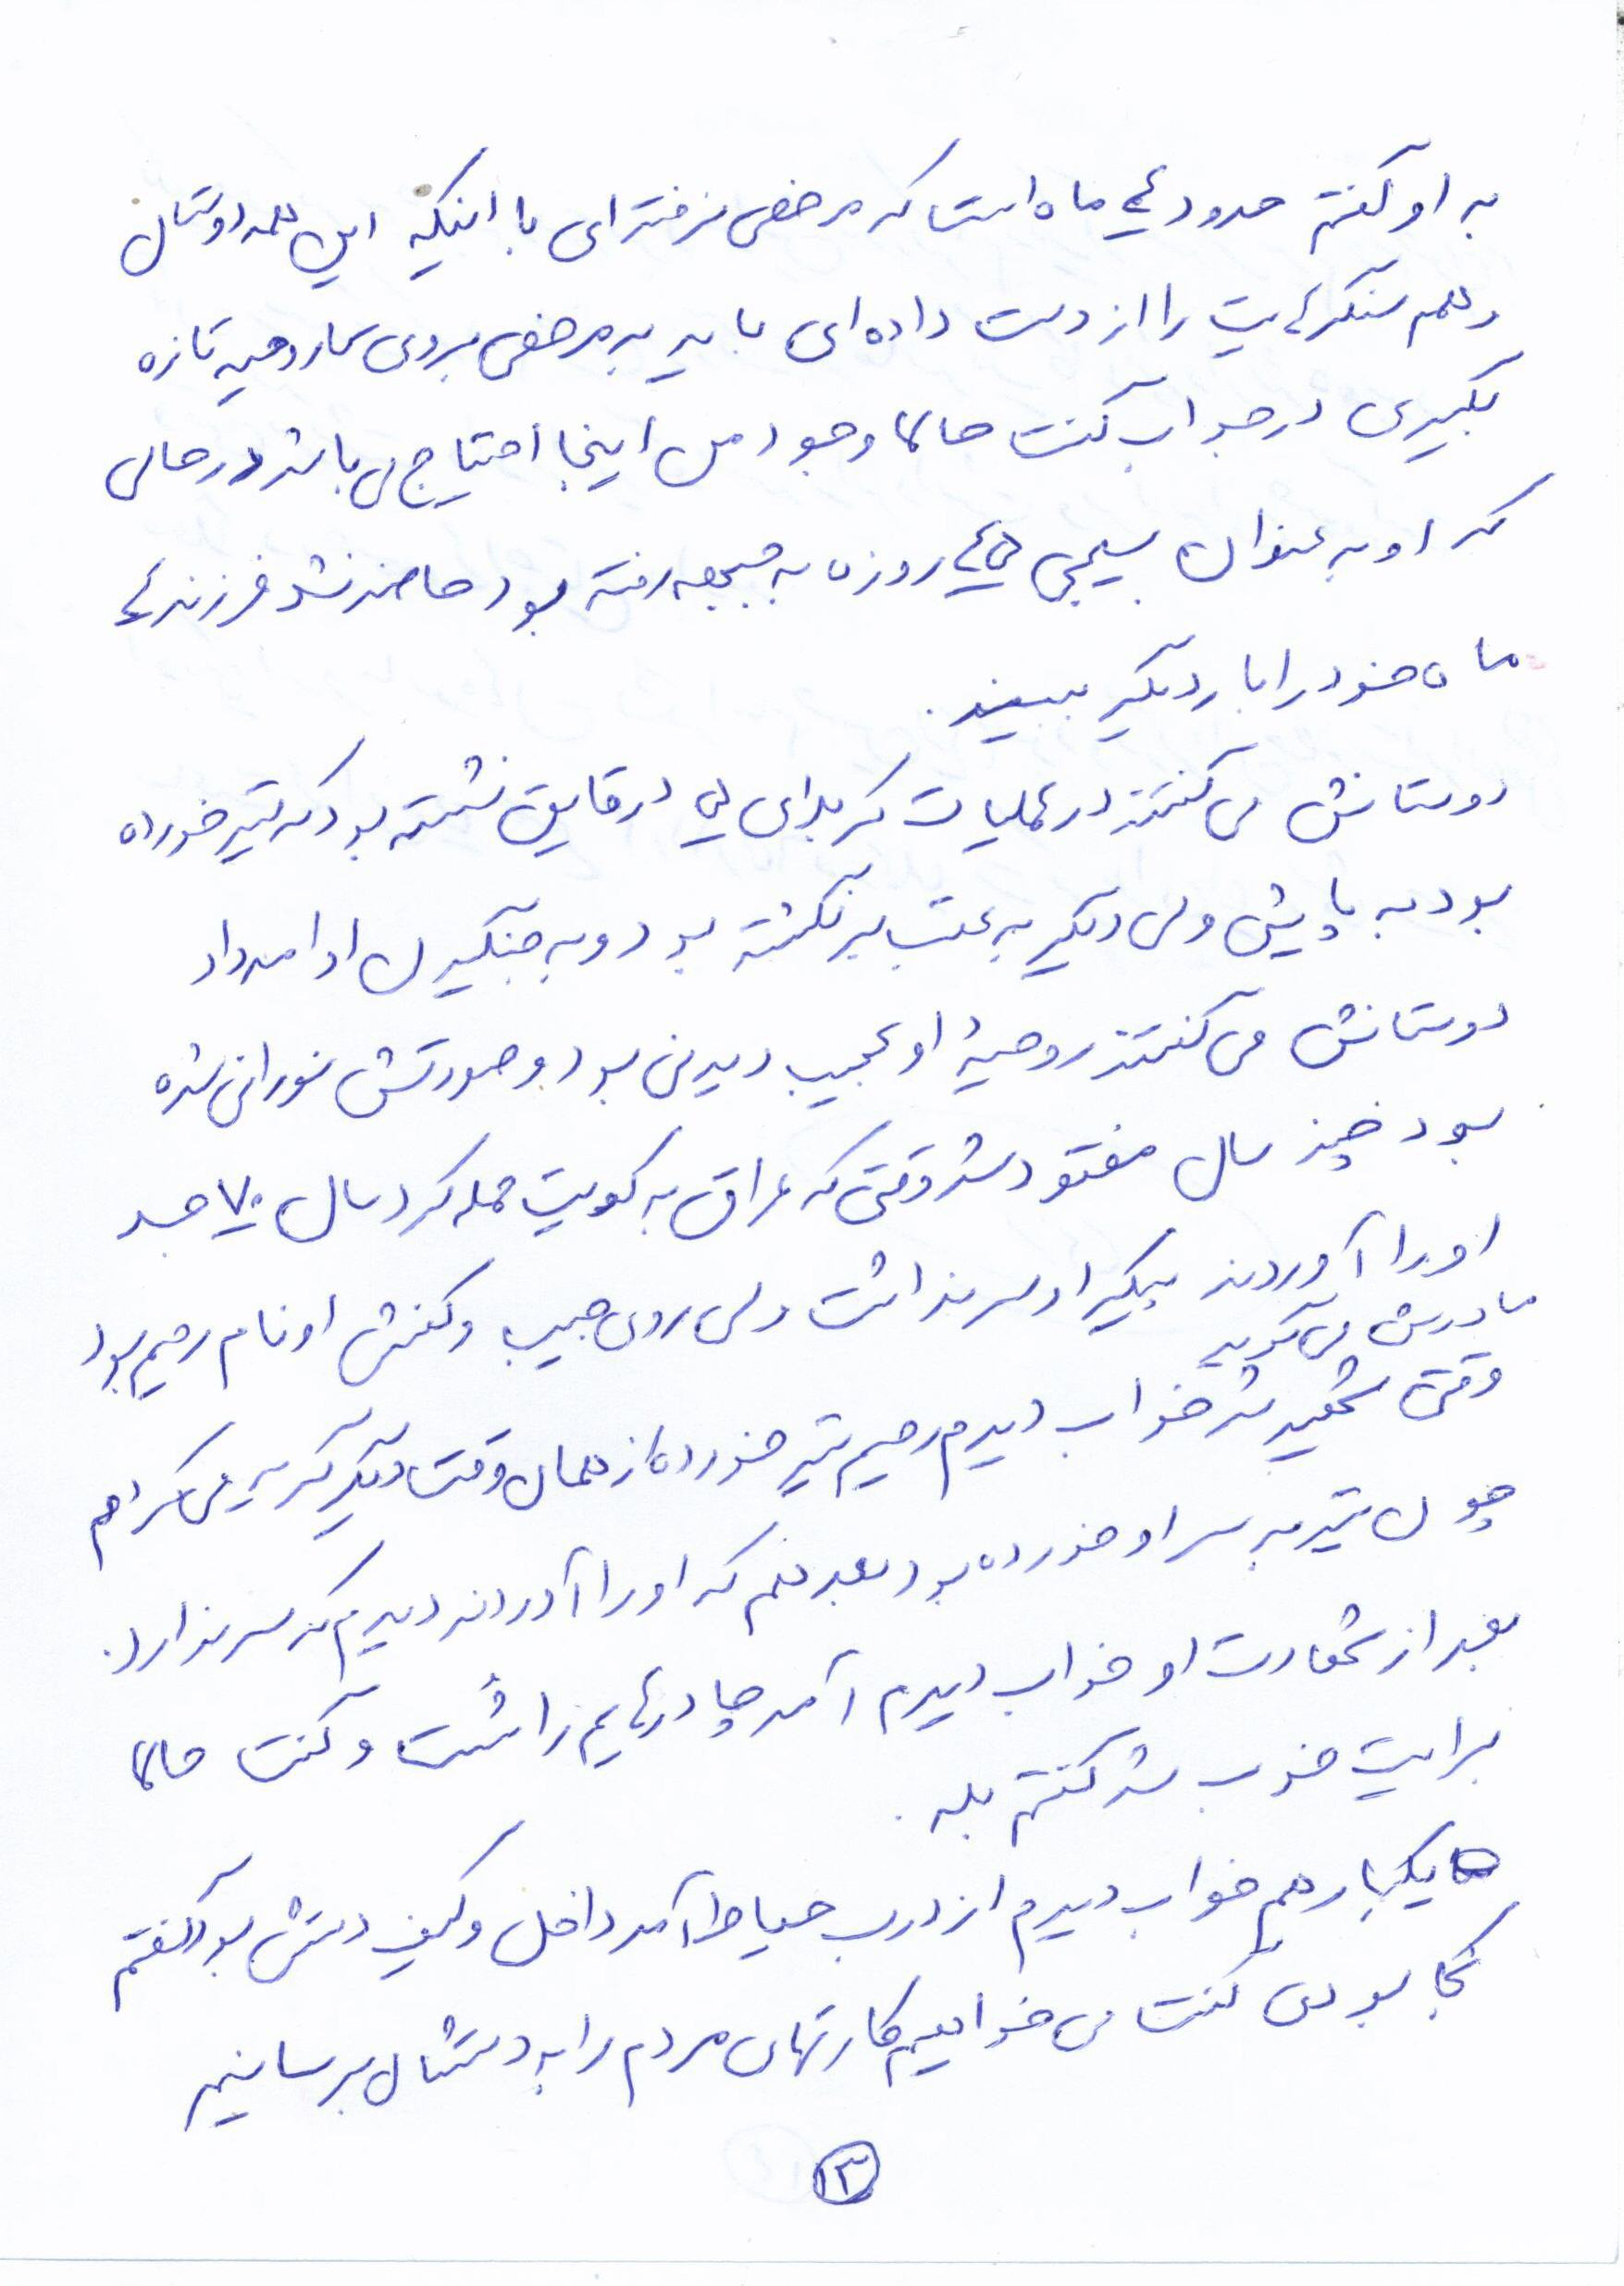 به او گفتم حدود ۴ ماه است که مرخصی نرفته‌ای با اینکه این همه دوستان
و هم سنگرهایت را از دست داده‌ای باید به مرخصی بروی تا روحیه تازه
بگیری در جواب گفت حالا وجود من اینجا احتیاج می باشد در حالی
که او به عنوان بسیجی ۴۵ روزه به جبهه رفته بود حاضر نشد فرزند ۴
ماه خود را بار دیگر ببیند.
دوستانش می گفتند در عملیات کربلای ۵ در قایق نشسته بود که تیر خورده
بود به پایش ولی دیگر به عقب برنگشته بود و به جنگیدن ادامه داد
دوستانش می گفتند روحیهٔ او عجیب دیدنی بود و صورتش نورانی شده
بود چند سال مفقود شد وقتی که عراق به کویت حمله کرد سال ۷۰ جسد
او را آوردند پیکر او سر نداشت ولی روی جیب و کفش او نام رحیم بود
مادرش می گوید
وقتی شهید شد خواب دیدم رحیم تیر خورده از همان وقت دیگر گریه می کردم
چون تیر به سر او خورده بود بعد هم که او را آوردند دیدم که سر ندارد.
بعد از شهادت او خواب دیدم آمد چادرهایم را شست و گفت حالا
برایت خوب شد گفتم بله.
یکبار هم خواب دیدم از درب حیاط آمد داخل و کیف دستش بود گفتم
کجا بودی گفت می خواهیم کارتهای مردم را به دستشان برسانیم
۱۳